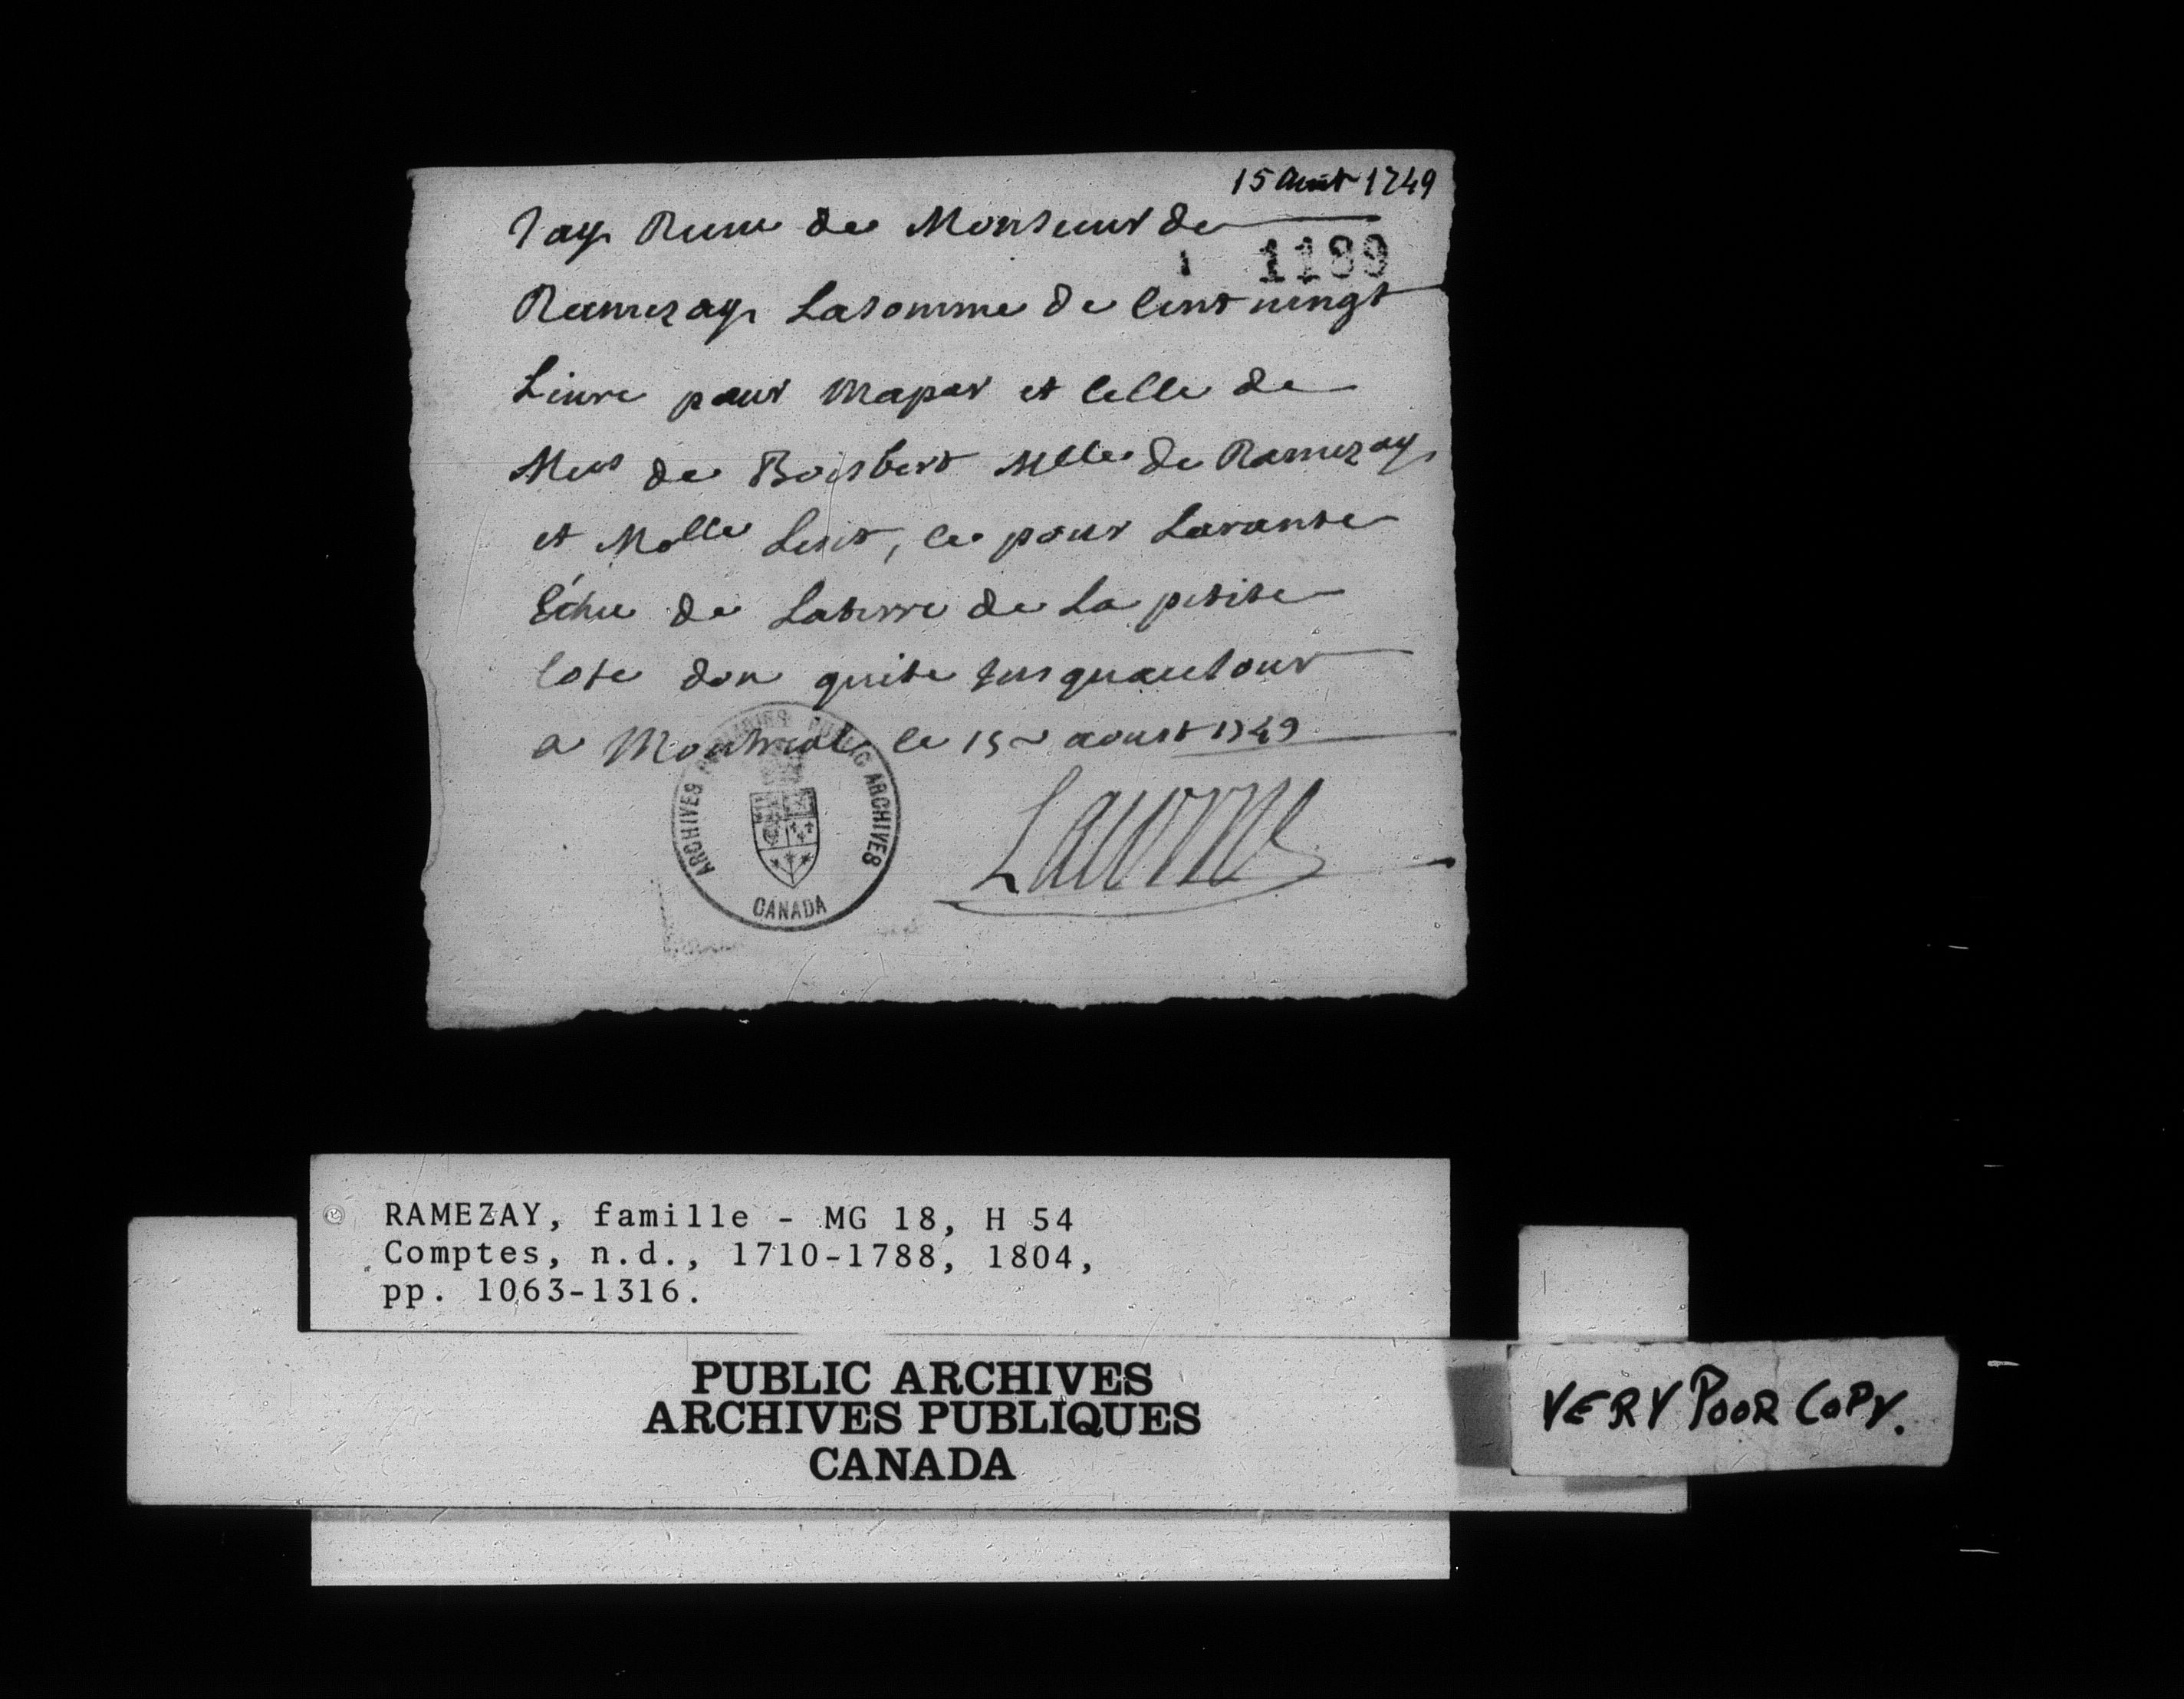 15 Aout 1749
Jay Recu de Monsieur de
1189
Ramezay Lasomme de Cent uingt
Liure pour Mapar et Celle de
Mrs de Boisbert Mlle de Ramezay
et Melle , Ce pour Larante
Échu de Laterre de La petite
Cote don quite JusquaceJour
a Montreal le 15 aoust 1749
Lacorne
ARCHIVES PUBLIQUES PUBLIC ARCHIVES
CANADA
RAMEZAY, famille - MG 18, H 54
Comptes, n.d., 1710-1788, 1804,
pp. 1063-1316.
PUBLIC ARCHIVES
ARCHIVES PUBLIQUES
CANADA
VERY POOR COPY.